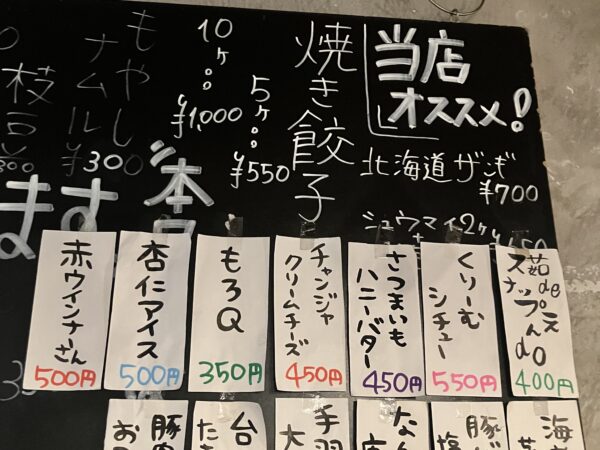 当店
オススメ!
北海道ザンギ
¥700
シュウマイ2ケ
焼き餃子
5ヶ‥¥550
10ヶ‥¥1,000
もやし
ナムル
¥300
枝豆
ます
茹de
スナップえんdo
400円
くりーむ
シチュー
550円
さつまいも
ハニーバター
450円
チャンジャ
クリームチーズ
450円
もろQ
350円
杏仁アイス
500円
赤ウインナーさん
500円
手羽
大
台
た
豚
お